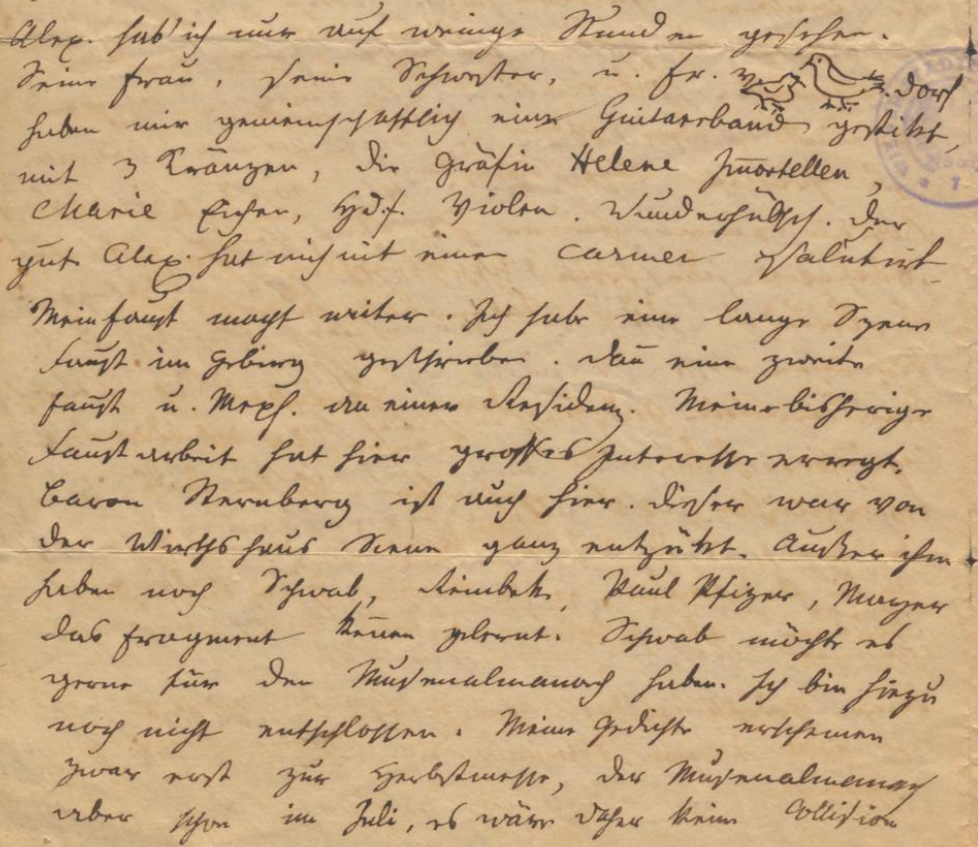 Alex. hab' ich nur auf wenige Stunden gesehen.
Seine Frau, seine Schwester, u. Fr. v. dorf
haben mir gemeinschaftlich eine Guitarrband gestikt,
mit 3 Kränzen, die Gräfin Helene Immortellen,
Marie Eichen, Hdf. Violen. Wunderhübsch. Der
gute Alex. hat mich mit einem carmen salutirt
Mein Faust macht weiter. Ich habe eine lange Szene
Faust im Gebirg geschrieben. Dan eine zweite
Faust u. Meph. in einer Residenz. Meine bisherige
Faustarbeit hat hier grosses Interesse erregt.
Baron Sternberg ist auch hier. Dieser war von
der Wirthshaus Scene ganz entzükt. Außer ihm
haben noch Schwab, Reinbek, Paul Pfizer, Mayer
das Fragment kennen gelernt. Schwab möchte es
gerne für den Musenalmanach haben. Ich bin hiezu
noch nicht entschlossen. Meine Gedichte erscheinen
zwar erst zur Herbstmesse, der Musenalmanach
aber schon im Juli, es wäre daher keine Collision